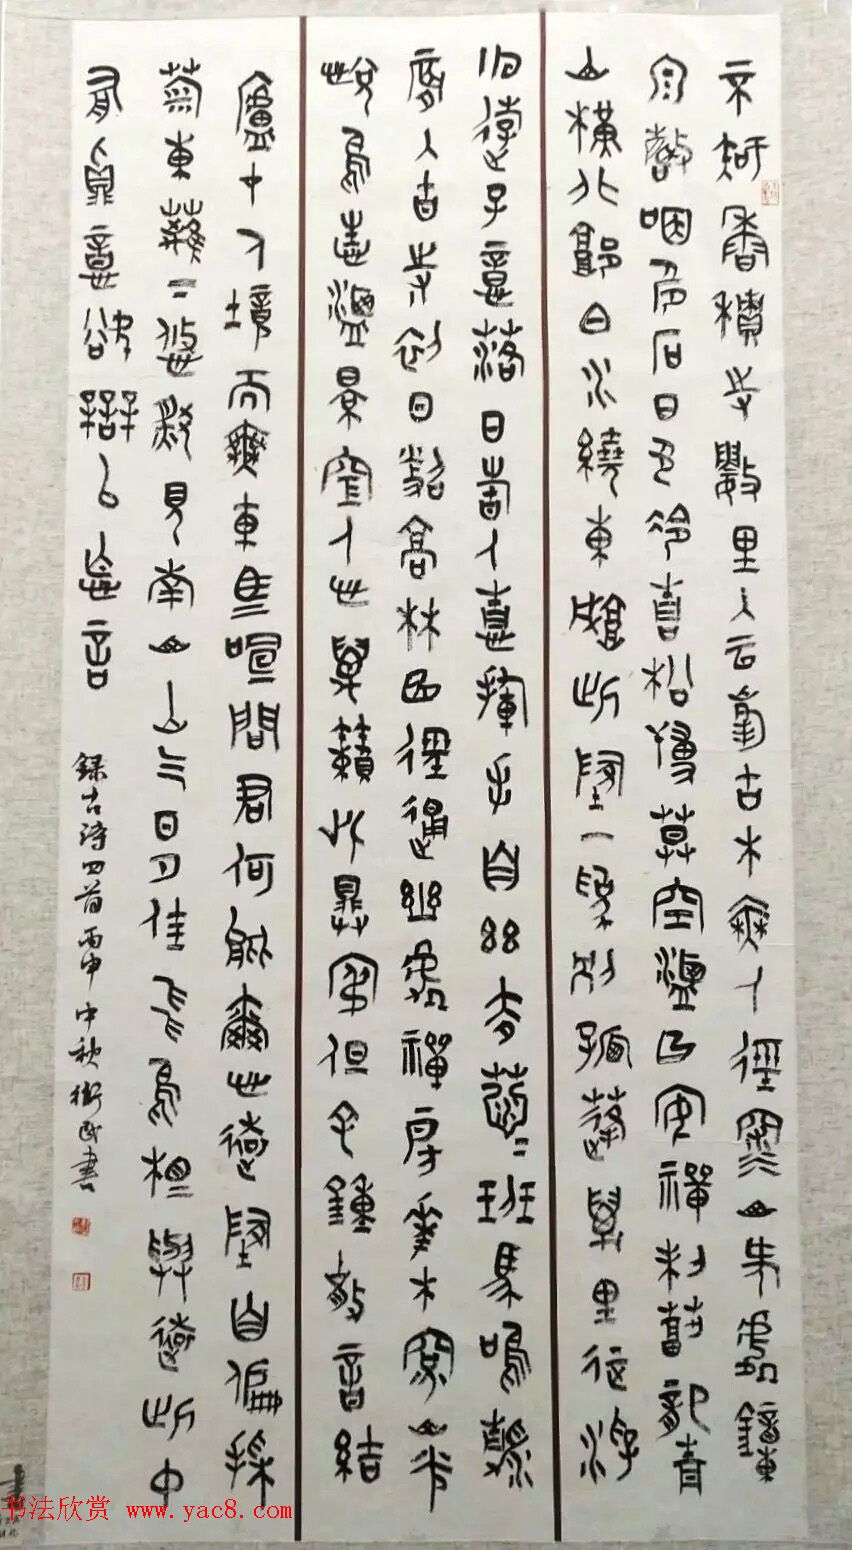 不知香積寺數里入云峯古木無人徑深山何處鐘
泉聲咽危石日色冷青松薄暮空潭曲安禪制毒龍青
山橫北郭白水繞東城此地一為別孤蓬萬里征浮
云遊子意落日故人情揮手自茲去蕭蕭班馬鳴清
晨入古寺初日照高林曲徑通幽處禪房花木深山光
悅鳥性潭影空人心萬籟此俱寂但余鐘磬音結
廬在人境而無車馬喧問君何能爾心遠地自偏採
菊東籬下悠然見南山山氣日夕佳飛鳥相與還此中
有真意欲辯已忘言 錄古詩四首丙申中秋衛民書
书法欣赏 www.yac8.com